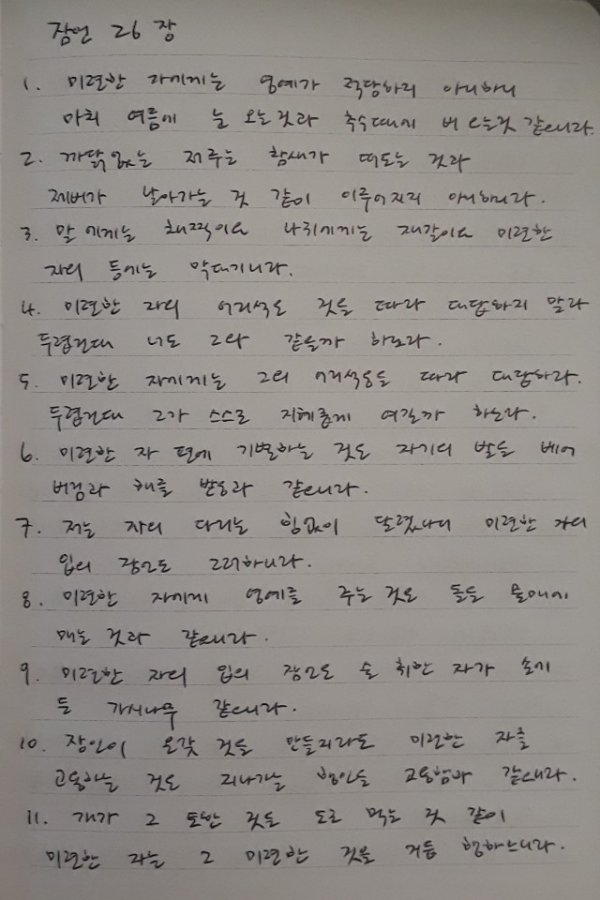 잠언 26 장
1. 미련한 자에게는 영예가 적당하지 아니하니
마치 여름에 눈 오는것과 추수때에 비 오는것 같으니라.
2. 까닭 없는 저주는 참새가 떠도는 것과
제비가 날아가는 것 같이 이루어지지 아니하니라.
3. 말에게는 채찍이요 나귀에게는 재갈이요 미련한
자의 등에는 막대기니라.
4. 미련한 자의 어리석은 것을 따라 대답하지 말라
두렵건대 너도 그와 같을까 하노라.
5. 미련한 자에게는 그의 어리석음을 따라 대답하라.
두렵건대 그가 스스로 지혜롭게 여길까 하노라.
6. 미련한 자 편에 기별하는 것은 자기의 발을 베어
버림과 해를 받음과 같으니라.
7. 저는 자의 다리는 힘없이 달렸나니 미련한 자의
입의 잠언도 그러하니라.
8. 미련한 자에게 영예를 주는 것은 돌을 물매에
매는 것과 같으니라.
9. 미련한 자의 입의 잠언은 술 취한 자가 손에
든 가시나무 같으니라.
10. 장인이 온갖 것을 만들지라도 미련한 자를
고용하는 것은 지나가는 행인을 고용함과 같으니라.
11. 개가 그 토한 것을 도로 먹는 것 같이
미련한 자는 그 미련한 것을 거듭 행하느니라.